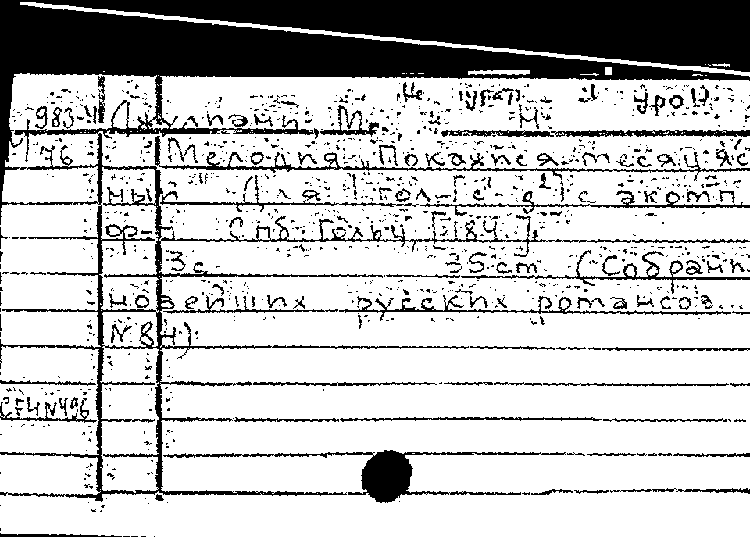 983-4 Джулиани, М.
76 Мелодия „Покажися месяц яс
ный" Для 1 гол. [c¹-g²] с акомп.
ор-п Спб, Гольц, [184 ].
3 с. 35 cm. (Собрани
новейших русских романсов...
N 84).